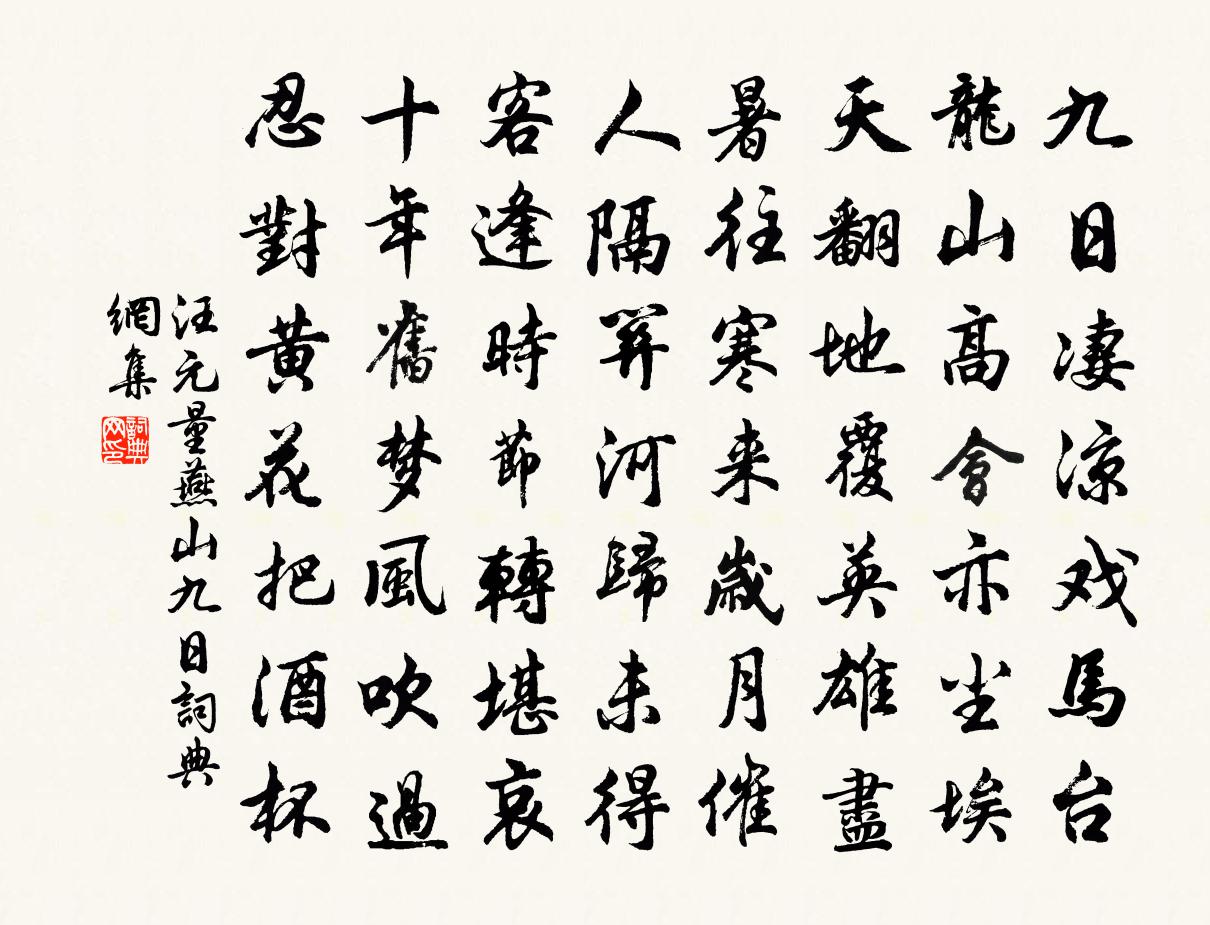 九日凄涼戏馬台
龍山高會亦尘埃
天翻地覆英雄盡
暑往寒来歲月催
人隔関河歸未得
客逢時節轉堪哀
十年舊梦風吹過
忍對黃花把酒杯
汪元量燕山九日詞典
網集
詞典
网印